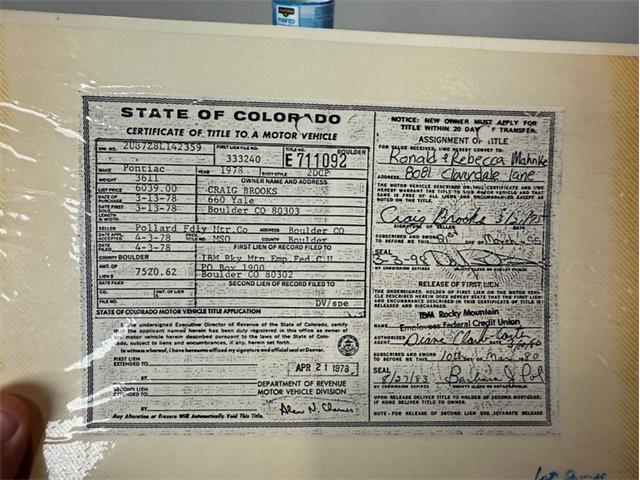 STATE OF COLORADO
CERTIFICATE OF TITLE TO A MOTOR VEHICLE
VIN. NO. 2U87Z8L142359
FIRST LIEN FILE NO. 333240
TITLE NO. BOULDER
E 711092
MAKE Pontiac YEAR 1978 BODY STYLE 2DCP
WEIGHT 3611 OWNER NAME AND ADDRESS
LIST PRICE 6039.00 CRAIG BROOKS
DATE OF PURCHASE 3-13-78 660 Yale
DATE FIRST 3-13-78 Boulder CO 80303
LENGTH & WIDTH
SELLER Pollard Fdly Mtr.Co ADDRESS Boulder CO
DATE APPL. ACCEPTED 4-3-78 PREV. TITLE NO. MSO COUNTY Boulder
4-3-78 FIRST LIEN OF RECORD FILED TO
COUNTY BOULDER IBM Rky Mtn Emp.Fed.C.U
AMT. OF 7520.62 PO Box 1900
Boulder CO 80302
DATE FILED SECOND LIEN OF RECORD FILED TO
CO. AMT.OF LIEN
FILE NO. DV/spe
STATE OF COLORADO MOTOR VEHICLE TITLE APPLICATION
The undersigned Executive Director of Revenue of the State of Colorado, certify
that the applicant named herein has been duly registered in this office as owner of
the motor vehicle herein described pursuant to the laws of the State of Colo-
rado, subject to liens and encumbrances, if any, herein set forth.
In witness whereof, I have hereunto affixed my signature and official seal at Denver.
FIRST LIEN EXTENDED TO
BY
APR 21 1978
SECOND LIEN EXTENDED TO
BY
DEPARTMENT OF REVENUE
MOTOR VEHICLE DIVISION
Alan N. Charnes
Any Alteration or Erasure Will Automatically Void This Title.
NOTICE: NEW OWNER MUST APPLY FOR
TITLE WITHIN 20 DAYS OF TRANSFER.
ASSIGNMENT OF TITLE
FOR VALUE RECEIVED, I/WE HEREBY CONVEY TO:
Ronald & Rebecca Mahnke
ADDRESS 8081 Cloverdale Lane
THE MOTOR VEHICLE DESCRIBED ON THIS CERTIFICATE AND I/WE
HEREBY WARRANT THE TITLE TO SUCH MOTOR VEHICLE AND THAT
SAME IS FREE OF ALL LIENS AND ENCUMBRANCES EXCEPT AS
NOTED ON THE TITLE.
Craig Brooks
SIGNATURE OF SELLER
SUBSCRIBED AND SWORN
TO BEFORE ME THIS DAY OF March
SEAL
MY COMMISSION EXPIRES
RELEASE OF FIRST LIEN
THE UNDERSIGNED, HOLDER OF FIRST LIEN ON THE MOTOR VEHI-
CLE DESCRIBED HEREIN DOES HEREBY STATE THAT THE FIRST LIEN
AND ENCUMBRANCE DESCRIBED IN THIS CERTIFICATE OF TITLE IS
RELEASED AND DISCHARGED.
IBM Rocky Mountain
NAME Employees Federal Credit Union
AUTHORIZED AGENT Diane
SUBSCRIBED AND SWORN
TO BEFORE ME THIS 10th DAY OF Mar 80
SEAL 8/27/83 Barbara J.
MY COMMISSION EXPIRES
UPON RELEASE DELIVER TITLE TO HOLDER OF SECOND MORTGAGE.
IF NONE DELIVER TITLE TO OWNER.
NOTE: FOR RELEASE OF SECOND LIEN USE SEPARATE RELEASE